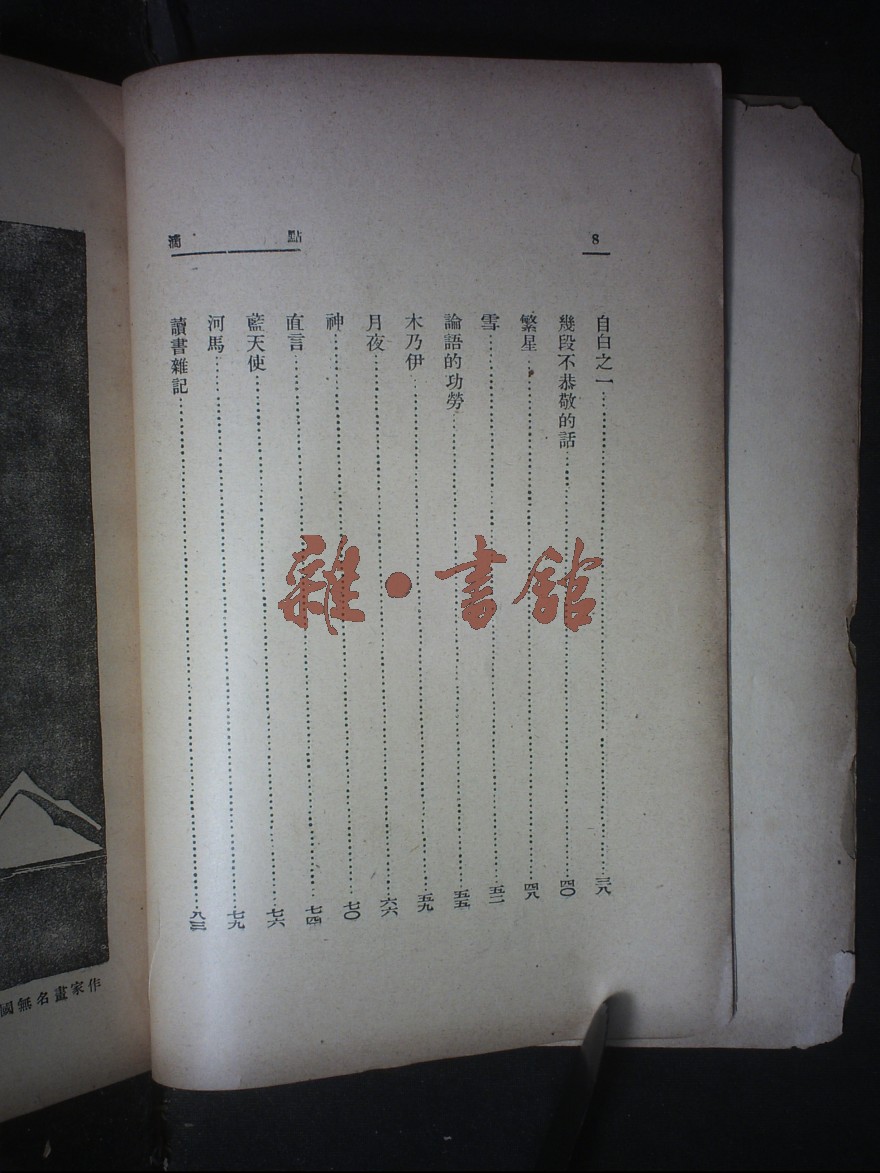 點滴
8
自白之一……三八
幾段不恭敬的話……四〇
繁星……四八
雪……五二
論語的功勞……五五
木乃伊……五九
月夜……六六
神……七〇
直言……七四
藍天使……七六
河馬……七九
讀書雜記……八三
雜·書館
國無名畫家作